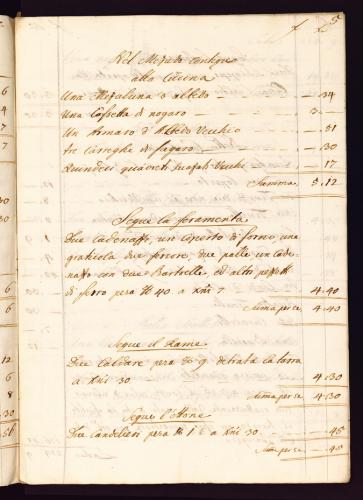 5
Nel Mezado contiguo
alla Cucina
Una Mezaluna d'Albedo - 34
Una Cassetta di nogaro 3 -
Un Armaro d'Albedo Vecchio - 51
tre Carreghe di fagaro - 30
Quindeci quadreti Vecchi - 17
Summa 5.12
Segue la feramenta
Due Cadenazzi, un Coperto di forno, una
gratiola due due palle un cade-
nazzo con due Bartoelle, ed altri pezzetti
di ferro pesa 40 a 7 4.40
Suma per se 4.40
Segue il Rame
Due Caldare pesa 9 detrata la tarra
a 30 4.30
Suma per se 4.30
Segue l'Ottone
Due Candelieri pesa 1 a 30 - 45
Suma per se - 45
6
4
7
7
30
30
6
6
12
6
8
30
51